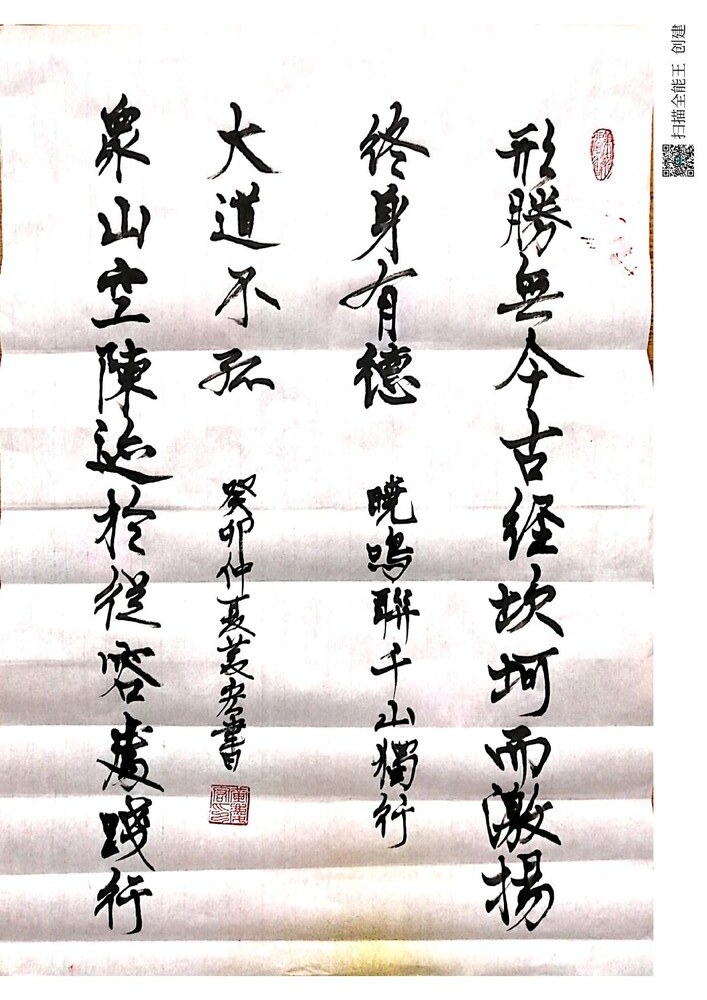 形勝無今古經坎坷而激揚
終身有德
曉鳴聯千山獨行
大道不孤
癸卯仲夏美宏書
眾山空陳迹於從容處踐行
扫描全能王 创建